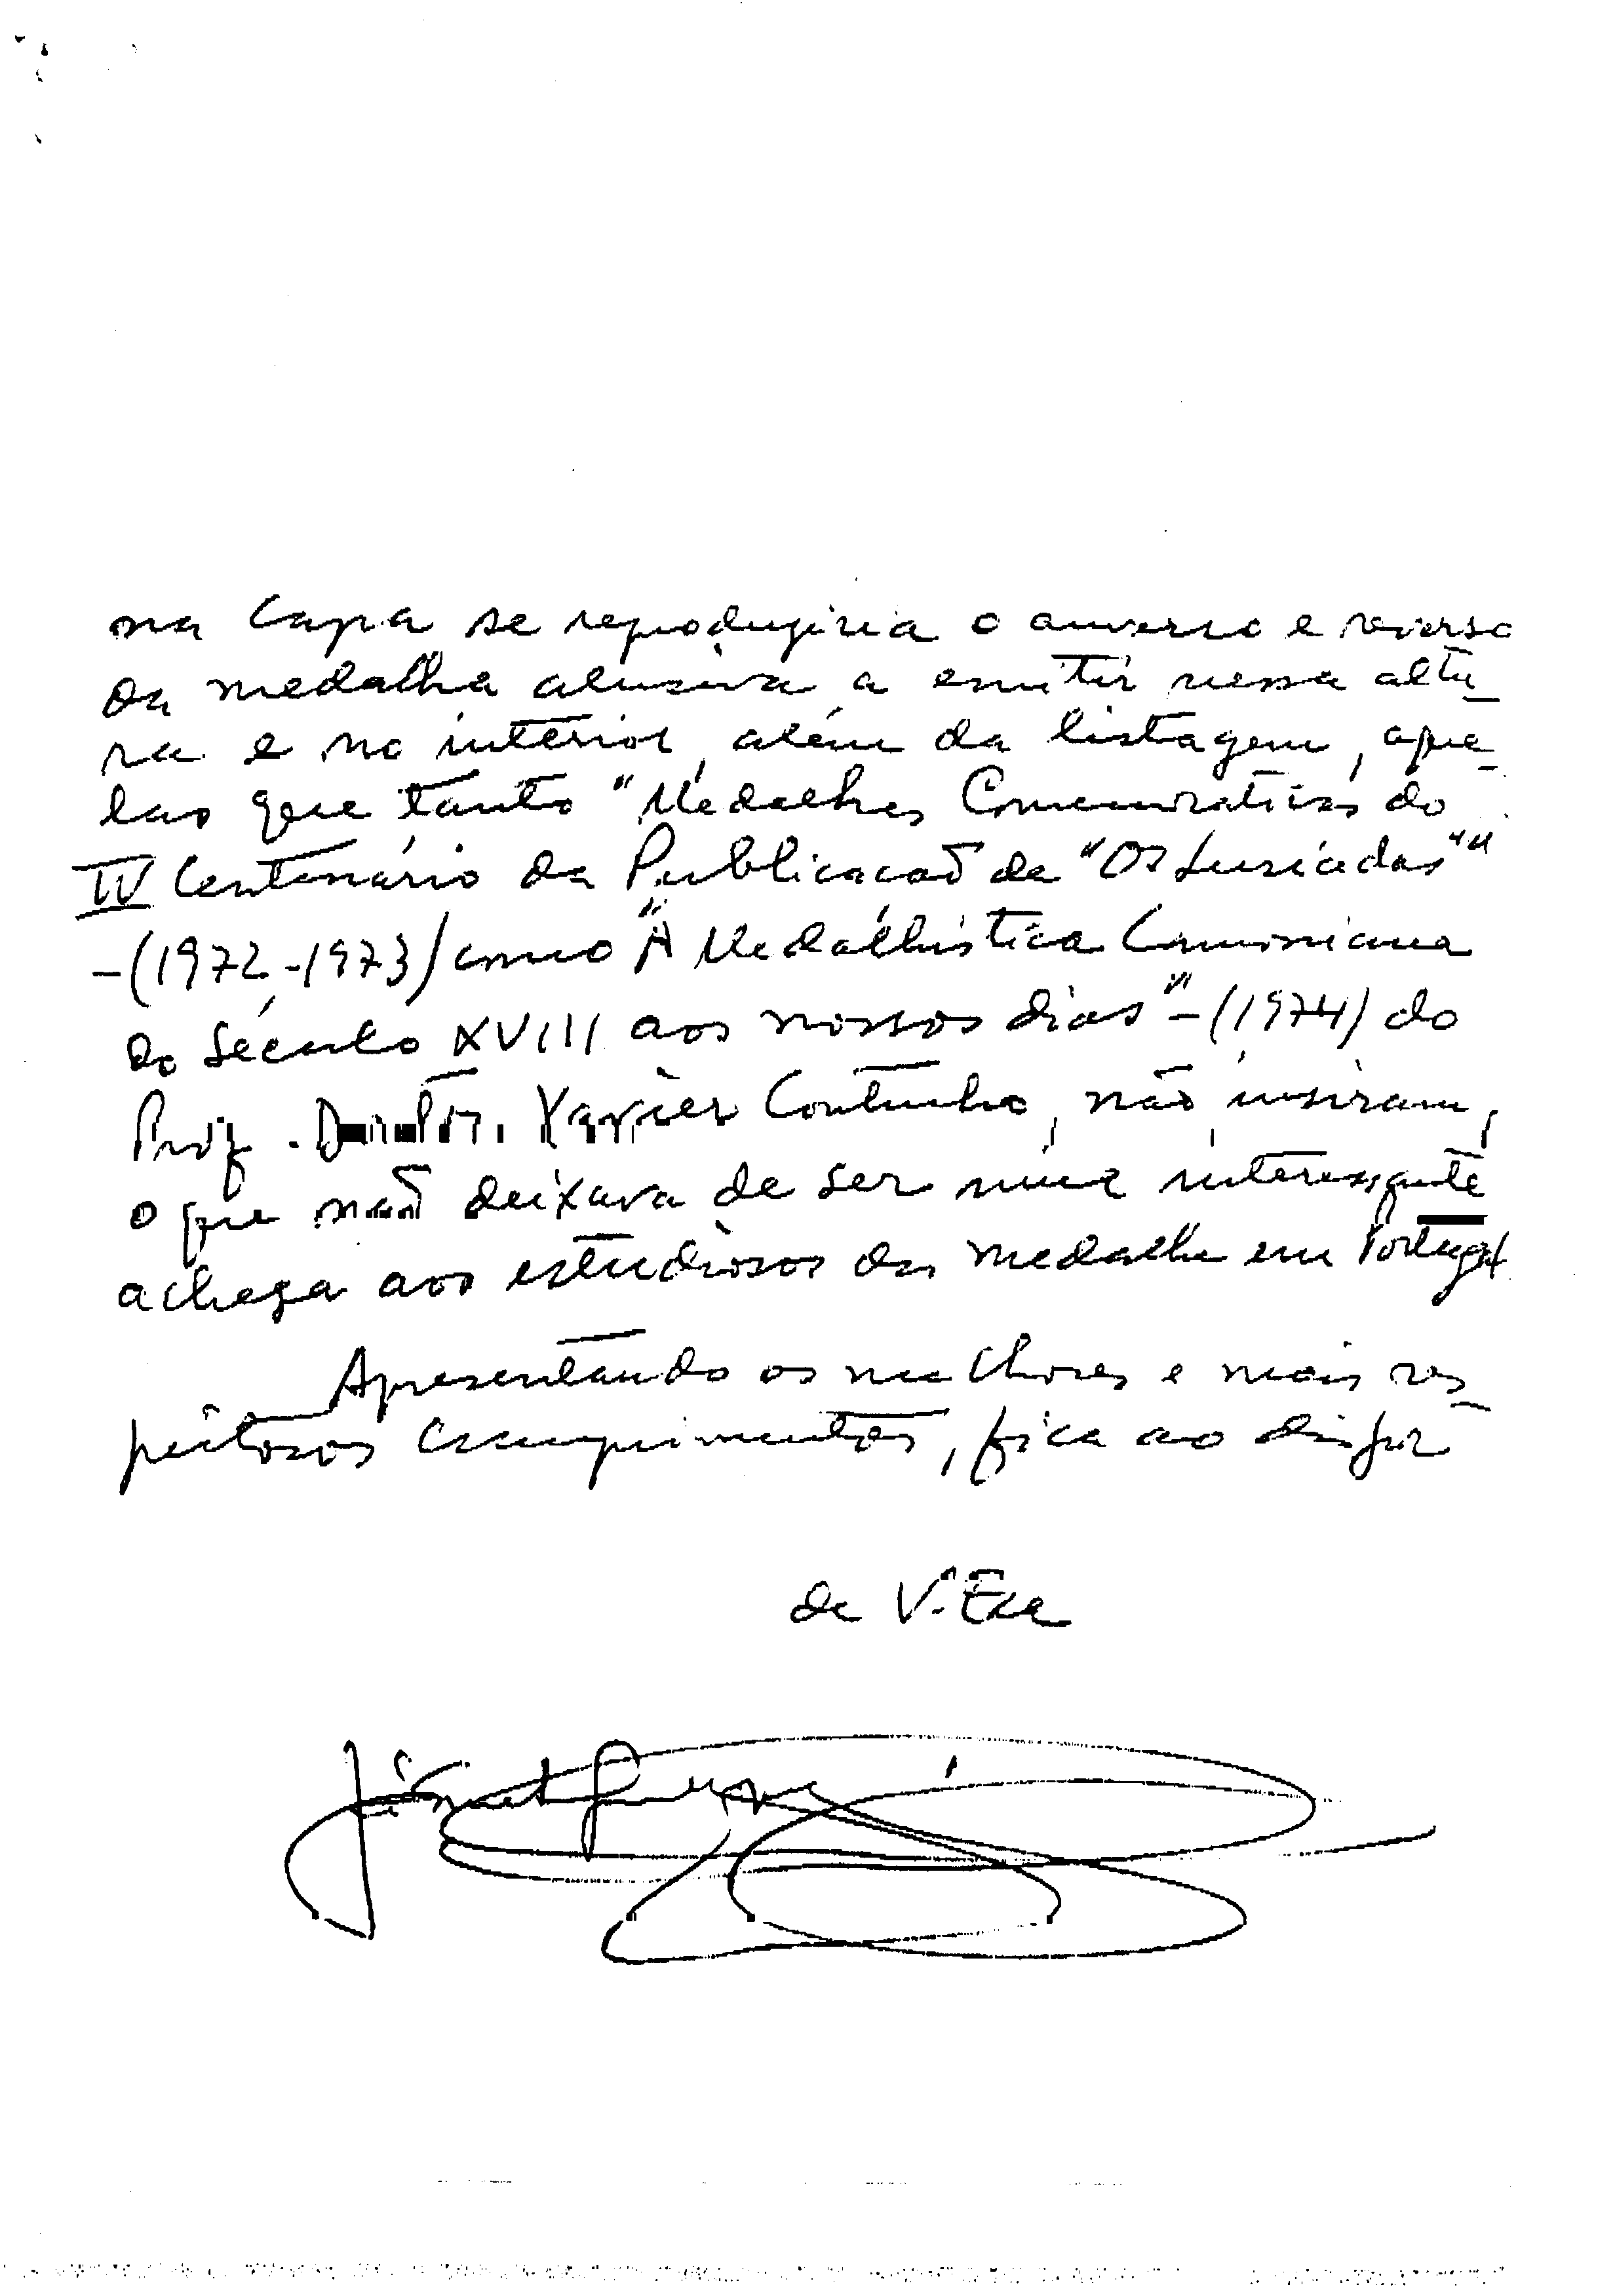 na capa se reproduziria o anverso e reverso
da medalha alusiva a emitir nessa altu-
ra e no interior, além da listagem, aque-
las que tanto "Medalhas Comemorativas do
IV Centenário da Publicação de "Os Lusíadas""
-(1972-1973) como "A Medalhística Camoniana
do Século XVIII aos nossos dias"-(1974) do
Prof. Doutor. Xavier Coutinho, não insiram,
o que não deixava de ser uma interessante
achega aos estudiosos da medalha em Portugal
Apresentando os melhores e mais res-
peitosos cumprimentos, fica ao dispor
de V. Exa